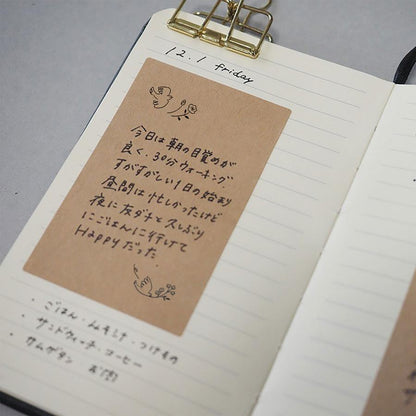 12.1 friday
今日は朝の目覚めが
良く、30分ウォーキング
すがすがしい1日の始まり
昼間は忙しかったけど
夜に友ダチと久しぶり
にごはんに行けて
Happyだった
・ごはん・みそしる・つけもの
・サンドウィッチ・コーヒー
・サムゲタン